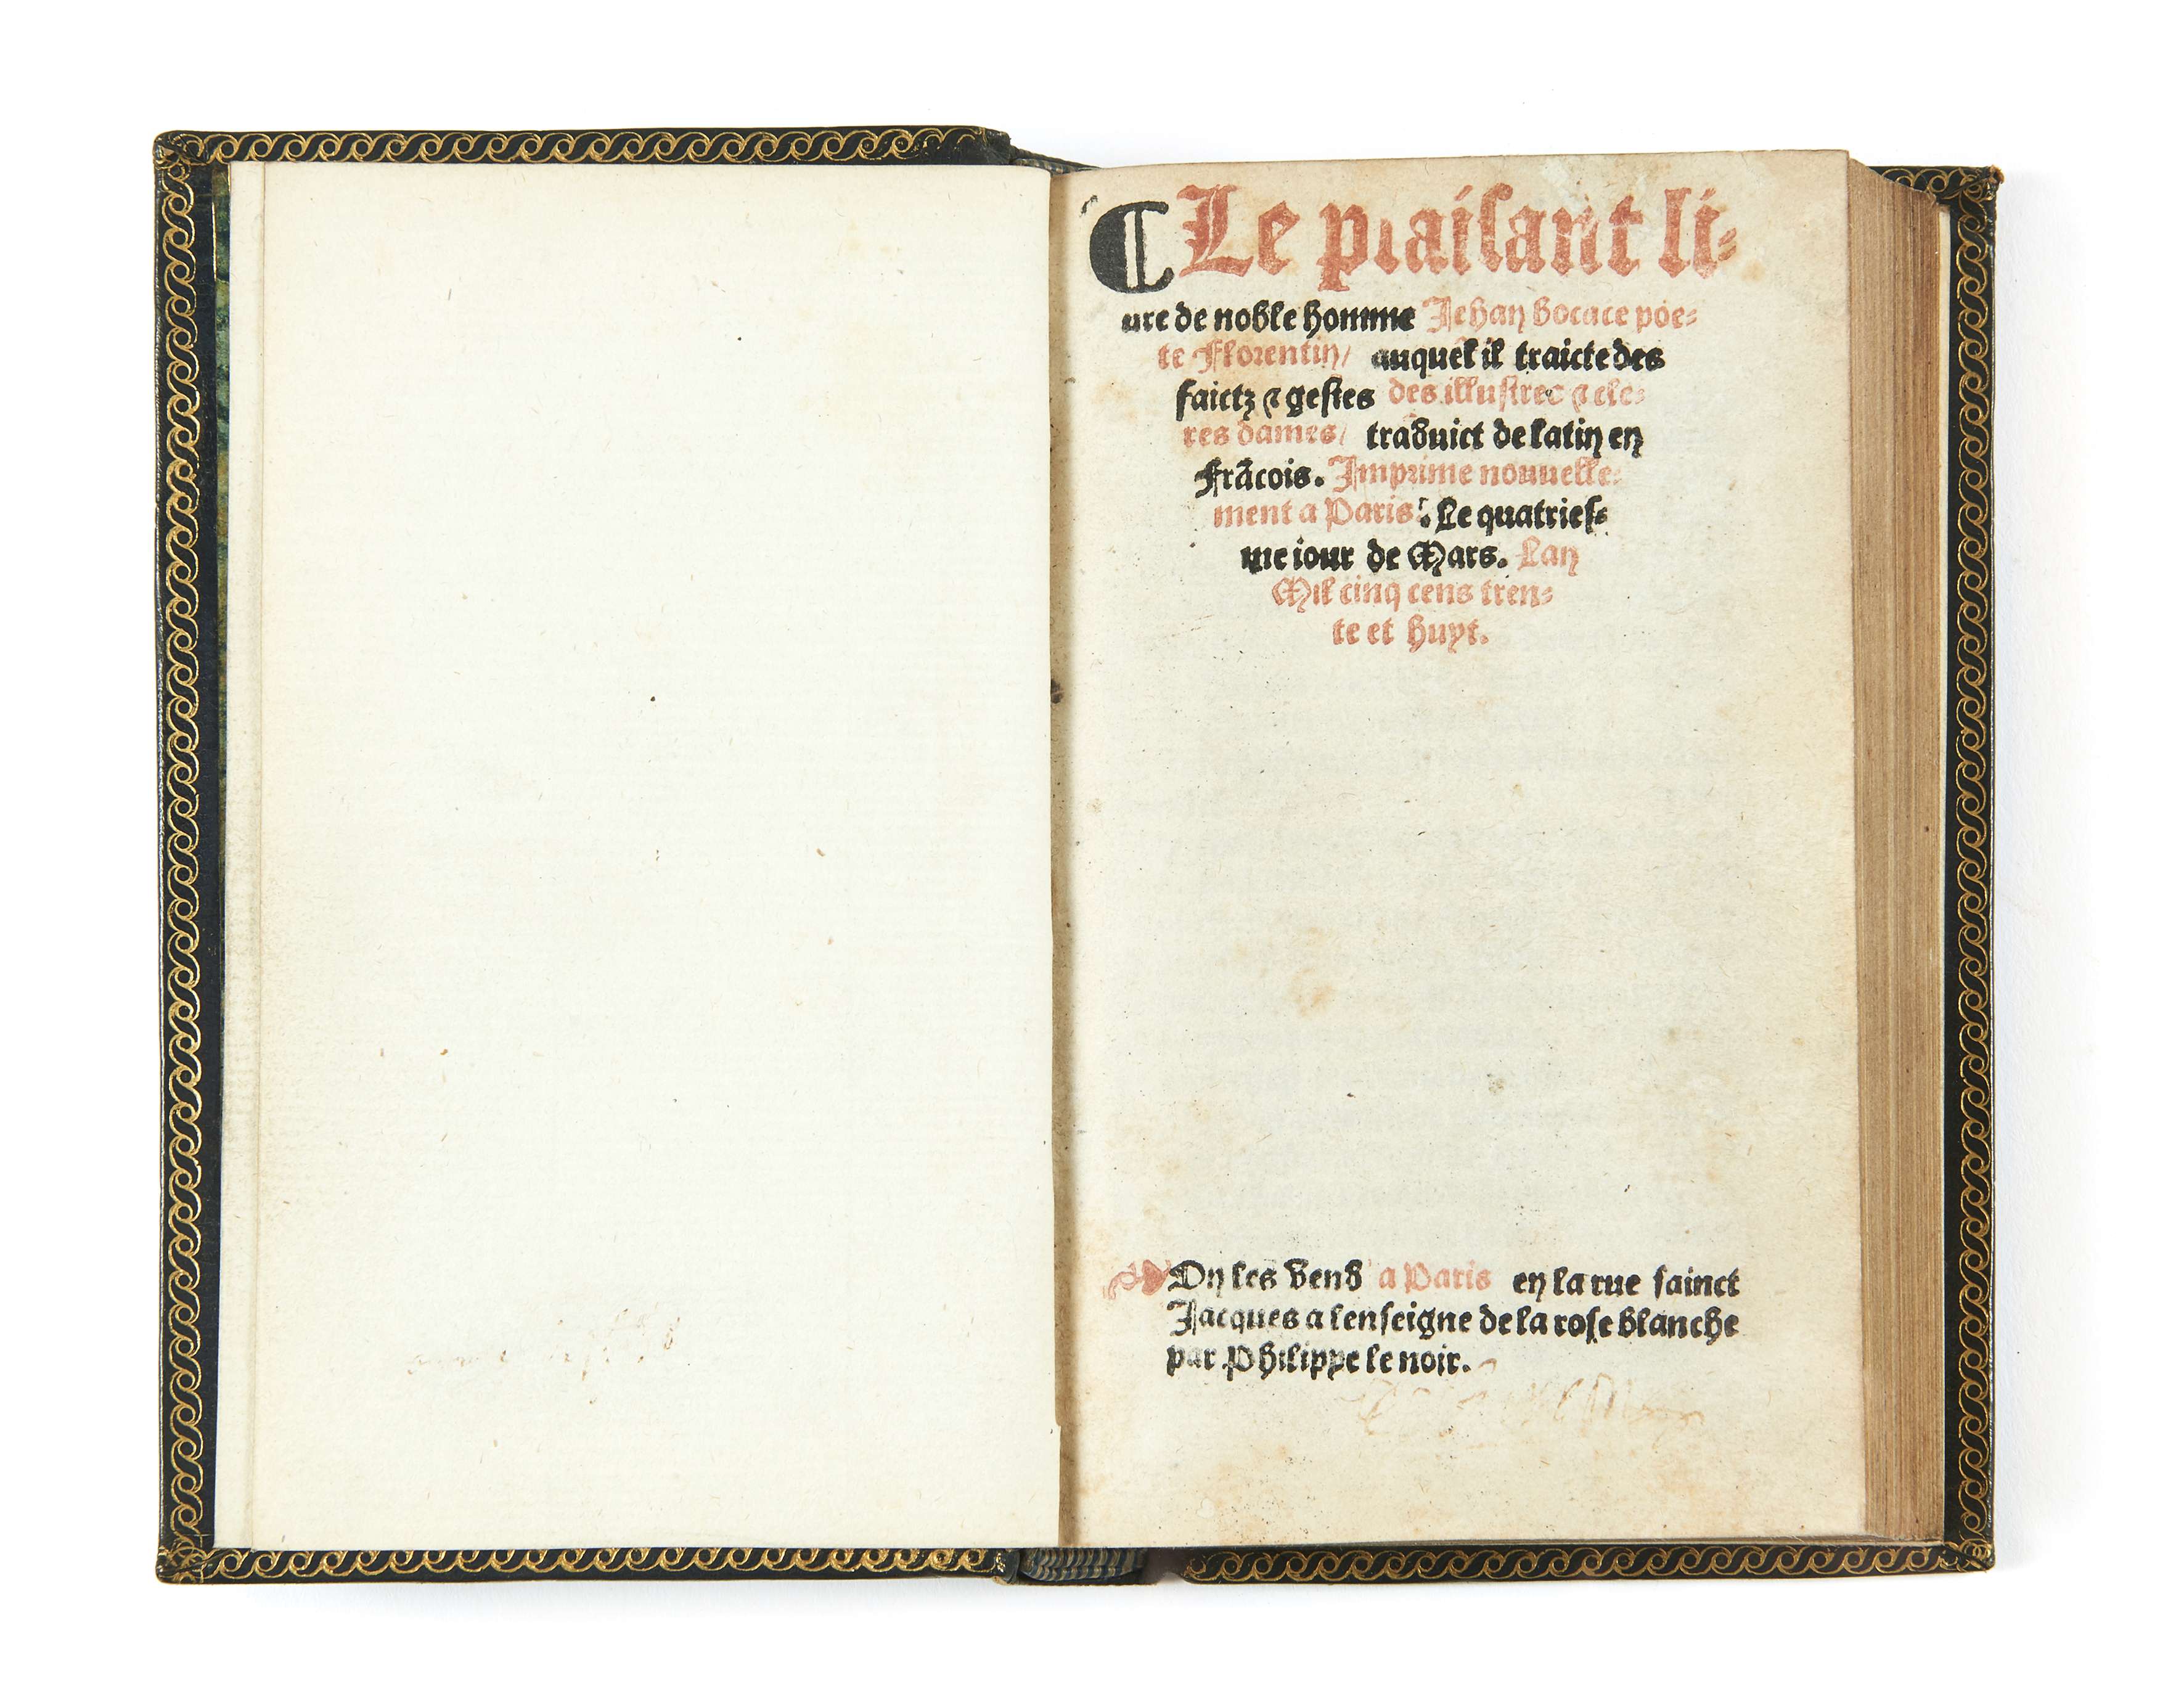 ¶ Le plaisant li-
ure de noble homme Jehan bocace poe-
te Florentin/ auquel il traicte des
faictz ⁊ gestes des illustres ⁊ cle-
res dames/ traduict de latin en
Frãcois. Imprime nouuelle-
ment a Paris. Le quatries-
me iour de Mars. Lan
Mil cinq cens tren-
te et huyt.
On les vend a Paris en la rue sainct
Jacques a lenseigne de la rose blanche
par Philippe le noir.